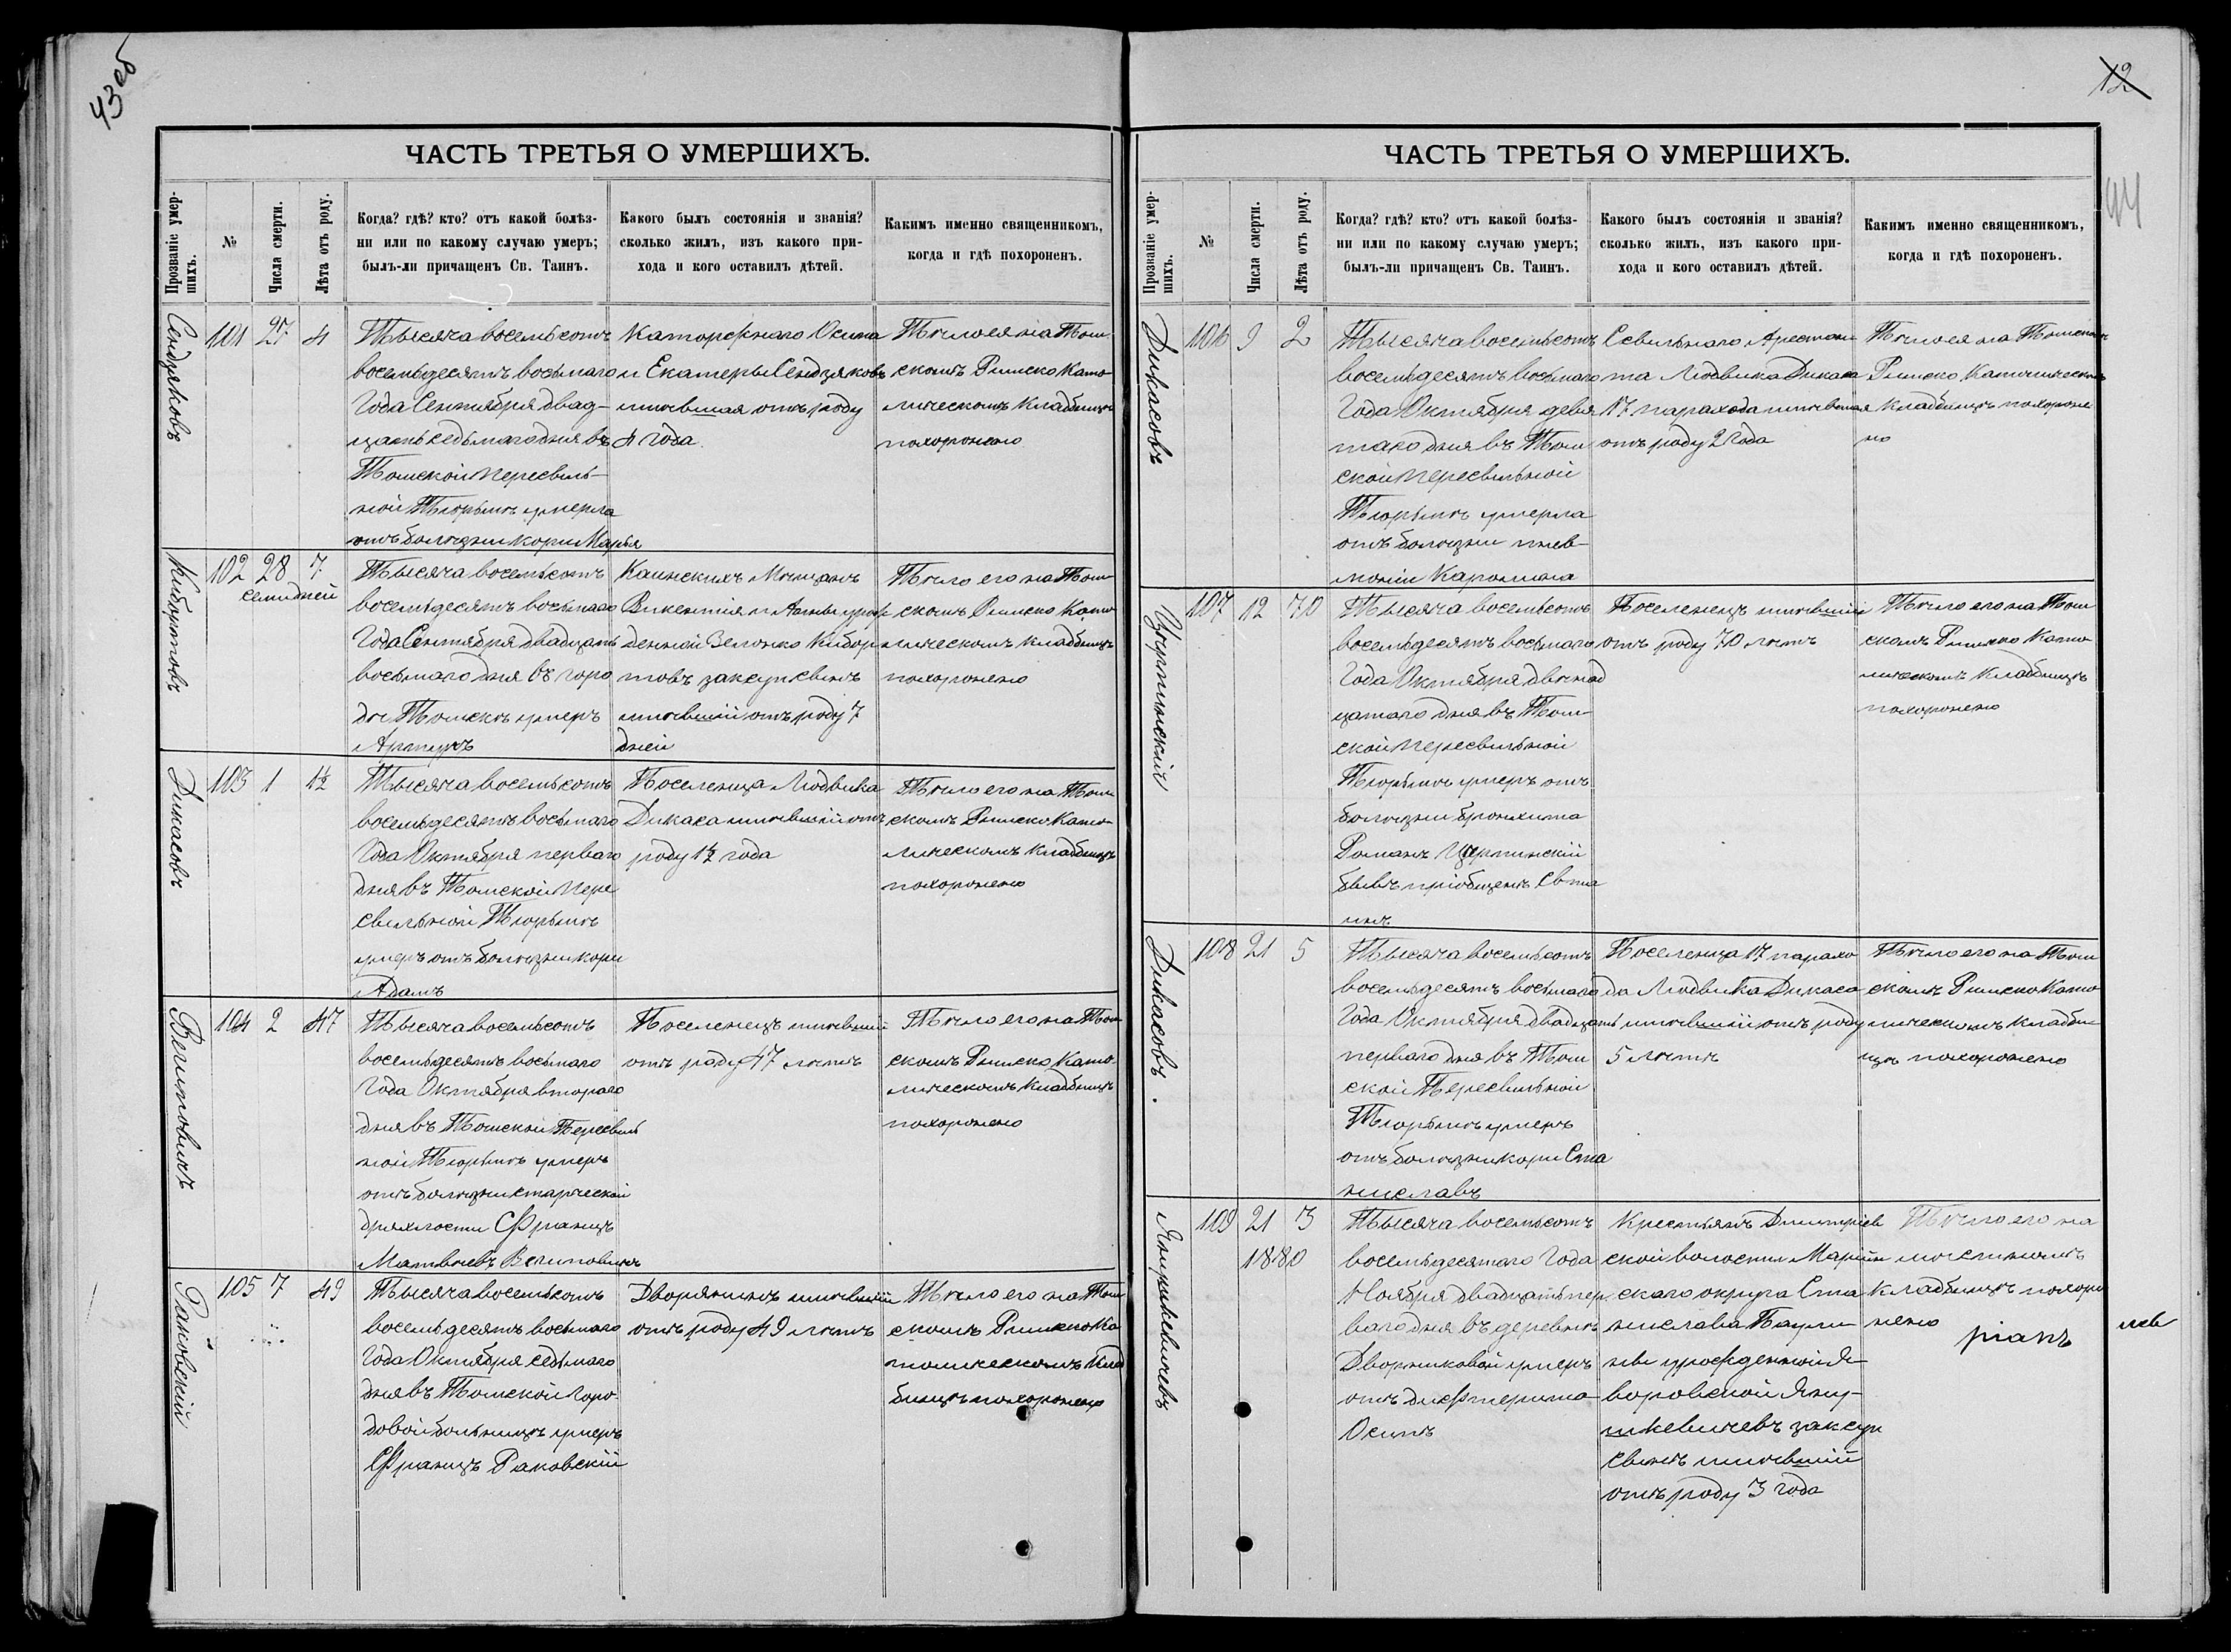 43 об
ЧАСТЬ ТРЕТЬЯ О УМЕРШИХЪ.
Прозваніе умер-
шихъ.
№
Числа смерти.
Лѣта отъ роду.
Когда? гдѣ? кто? отъ какой болѣз-
ни или по какому случаю умеръ;
былъ-ли причащенъ Св. Таинъ.
Какого былъ состоянія и званія?
сколько жилъ, изъ какого при-
хода и кого оставилъ дѣтей.
Каким именно священникомъ,
когда и гдѣ похороненъ.
Сендзяковъ
101 27 4
Тысяча восемьсотъ
восемьдесятъ восьмаго
Года Сентября двад-
цать седьмаго дня въ
Томской Пересыль-
ной Тюрьмѣ умерла
отъ болѣзни кори Марья
Каторжнаго Осипа
и Екатеры Сендзяковъ
имѣвшая отъ роду
4 года
Тѣло ея на Том
скомъ Римско Като
лическомъ Кладбищѣ
похоронено
Кибортовъ
102 28 7
семи дней
Тысяча восемьсотъ
восемьдесятъ восьмаго
Года Сентября двадцать
восьмаго дня въ горо
дѣ Томскѣ умеръ
Артуръ
Каинскихъ Мѣщанъ
Викентія и Анны урож
денной Зелонко Кибор
товъ законныхъ
имѣвшій отъ роду 7
дней
Тѣло его на Том
скомъ Римско Като
лическомъ Кладбищѣ
похоронено
Дикасовъ
103 1 1½
Тысяча восемьсотъ
восемьдесятъ восьмаго
Года Октября перваго
дня въ Томской Пере
сыльной Тюрьмѣ
умеръ отъ болѣзни кори
Адамъ
Поселенца Людвика
Дикаса имѣвшій отъ
роду 1½ года
Тѣло его на Том
скомъ Римско Като-
лическомъ Кладбищѣ
похоронено
104 2 47
Тысяча восемьсотъ
восемьдесятъ восьмаго
Года Октября втораго
дня въ Томской Пересыль
ной Тюрьмѣ умеръ
отъ болѣзни старческой
дряхлости Францъ
Матвѣевъ
Поселенецъ имѣвшій
отъ роду 47 лѣтъ
Тѣло его на Том
скомъ Римско Като
лическомъ Кладбищѣ
похоронено
Раковскій
105 7 49
Тысяча восемьсотъ
восемьдесятъ восьмаго
Года Октября седьмаго
дня въ Томской Горо
довой больницѣ умеръ
Францъ Раковскій
Дворянинъ имѣвшій
отъ роду 49 лѣтъ
Тѣло его на Том
скомъ Римско Ка
толическомъ Клад
бищѣ похоронено
12
44
ЧАСТЬ ТРЕТЬЯ О УМЕРШИХЪ.
Прозваніе умер-
шихъ.
№
Числа смерти.
Лѣта отъ роду.
Когда? гдѣ? кто? отъ какой болѣз-
ни или по какому случаю умеръ;
былъ-ли причащенъ Св. Таинъ.
Какого былъ состоянія и званія?
сколько жилъ, изъ какого при-
хода и кого оставилъ дѣтей.
Каким именно священникомъ,
когда и гдѣ похороненъ.
Дикасовъ
106 9 2
Тысяча восемьсотъ
восемьдесятъ восьмаго
Года Октября девя
таго дня въ Том
ской Пересыльной
Тюрьмѣ умерла
отъ болѣзни пнев-
моніи Каролина
Ссыльнаго Арестан
та Людвика Дикаса
17 парахода имѣвшая
отъ роду 2 года
Тѣло ея на Томскомъ
Римско Католическомъ
Кладбищѣ похороне
но
107 12 70
Тысяча восемьсотъ
восемьдесятъ восьмаго
Года Октября двѣнад
цатаго дня въ Том
ской Пересыльной
Тюрьмѣ умеръ отъ
болѣзни бронхита
Романъ
бывъ пріобщенъ Св та
инъ
Поселенецъ имѣвшій
отъ роду 70 лѣтъ
Тѣло его на Том
скомъ Римско Като
лическомъ Кладбищѣ
похоронено
Дикасовъ.
108 21 5
Тысяча восемьсотъ
восемьдесятъ восьмаго
Года Октября двадцать
перваго дня въ Том
ской Пересыльной
Тюрьмѣ умеръ
отъ болѣзни кори Ста
ниславъ
Поселенца 17 парахо
да Людвика Дикаса
имѣвшій отъ роду
5 лѣтъ
Тѣло его на Том
скомъ Римско Като
лическомъ Кладби
щѣ похоронено
Янушкевичевъ
109 21 3
1880
Тысяча восемьсотъ
восемьдесятаго Года
Ноября двадцать пер
ваго дня въ деревнѣ
Дворниковой умеръ
отъ дифтерита
Осипъ
Крестьянъ Дмитріев
ской волости Маріин
скаго округа Ста
нислава Паули
ны урожденной Я-
воровской Яну-
шкевичевъ закон
имѣвшій
отъ роду 3 года
Тѣло его на
мѣстномъ
Кладбищѣ похоро
нено
ріинъ